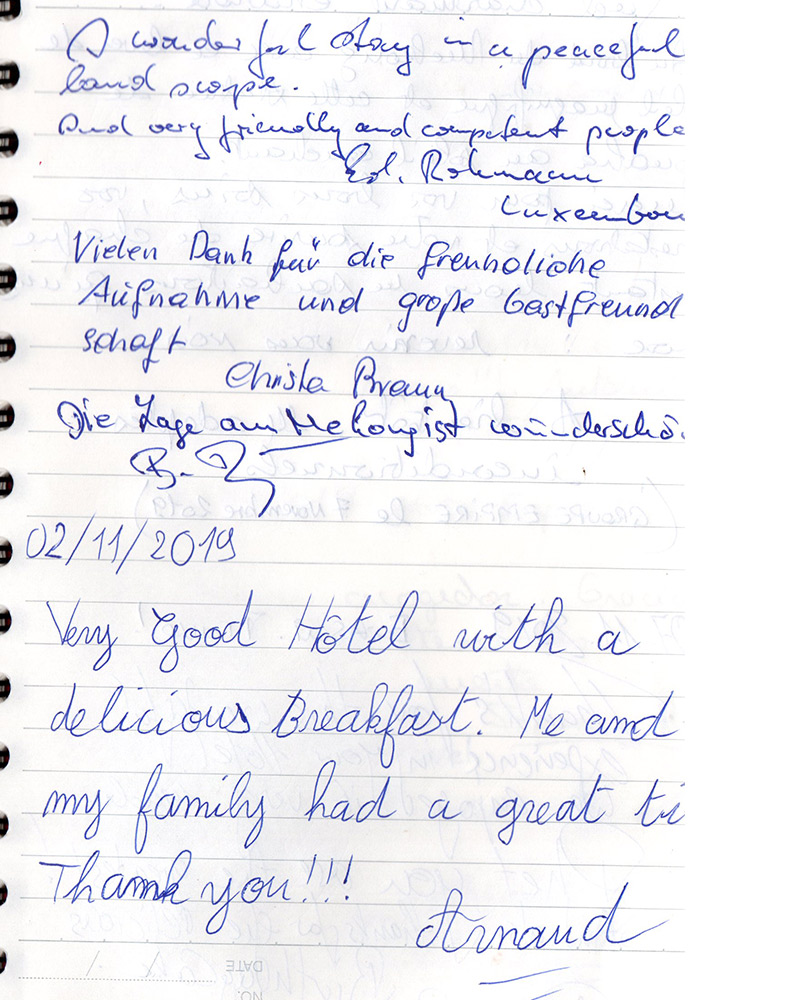 A wonderful stay in a peaceful
land scope.
And very friendly and competent people
Rohmann
Luxembou
Vielen Dank für die freundliche
Aufnahme und große Gastfreund
schaft
Christa Braun
Die Lage am Mekong ist wunderschö
02/11/2019
Very Good Hôtel with a
delicious Breakfast. Me and
my family had a great ti
Thank you!!!
Arnaud
DATE
NO.